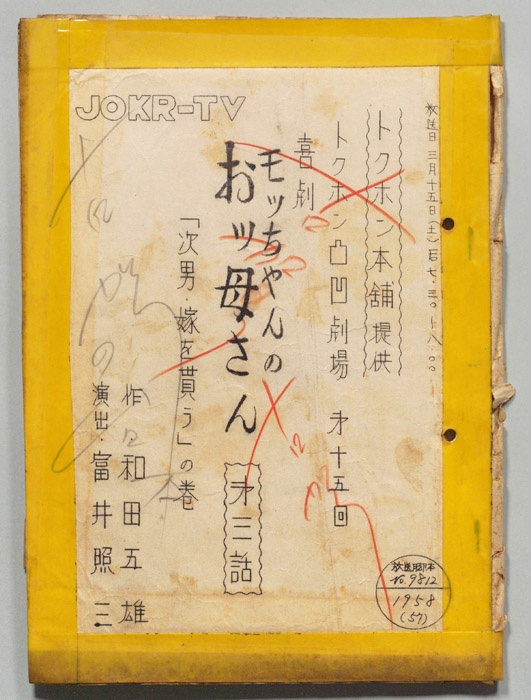 放送日 三月十五日(土)后七.三〇ー八.〇〇ー
トクホン本舗提供
トクホン凸凹劇場 才十五回
喜劇
モッちゃんの
おッ母さん 才三話
「次男・嫁を貰う」の巻
作・和田五雄
演出・富井照三
JOKR-TV
放送脚本
№9812
1958
(57)